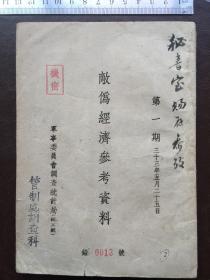 秘書室
存参考
第一期
三十三年五月二十五日
機密
敵偽經濟參考資料
軍事委員會調查統計局
管制
科
錄 0013 號